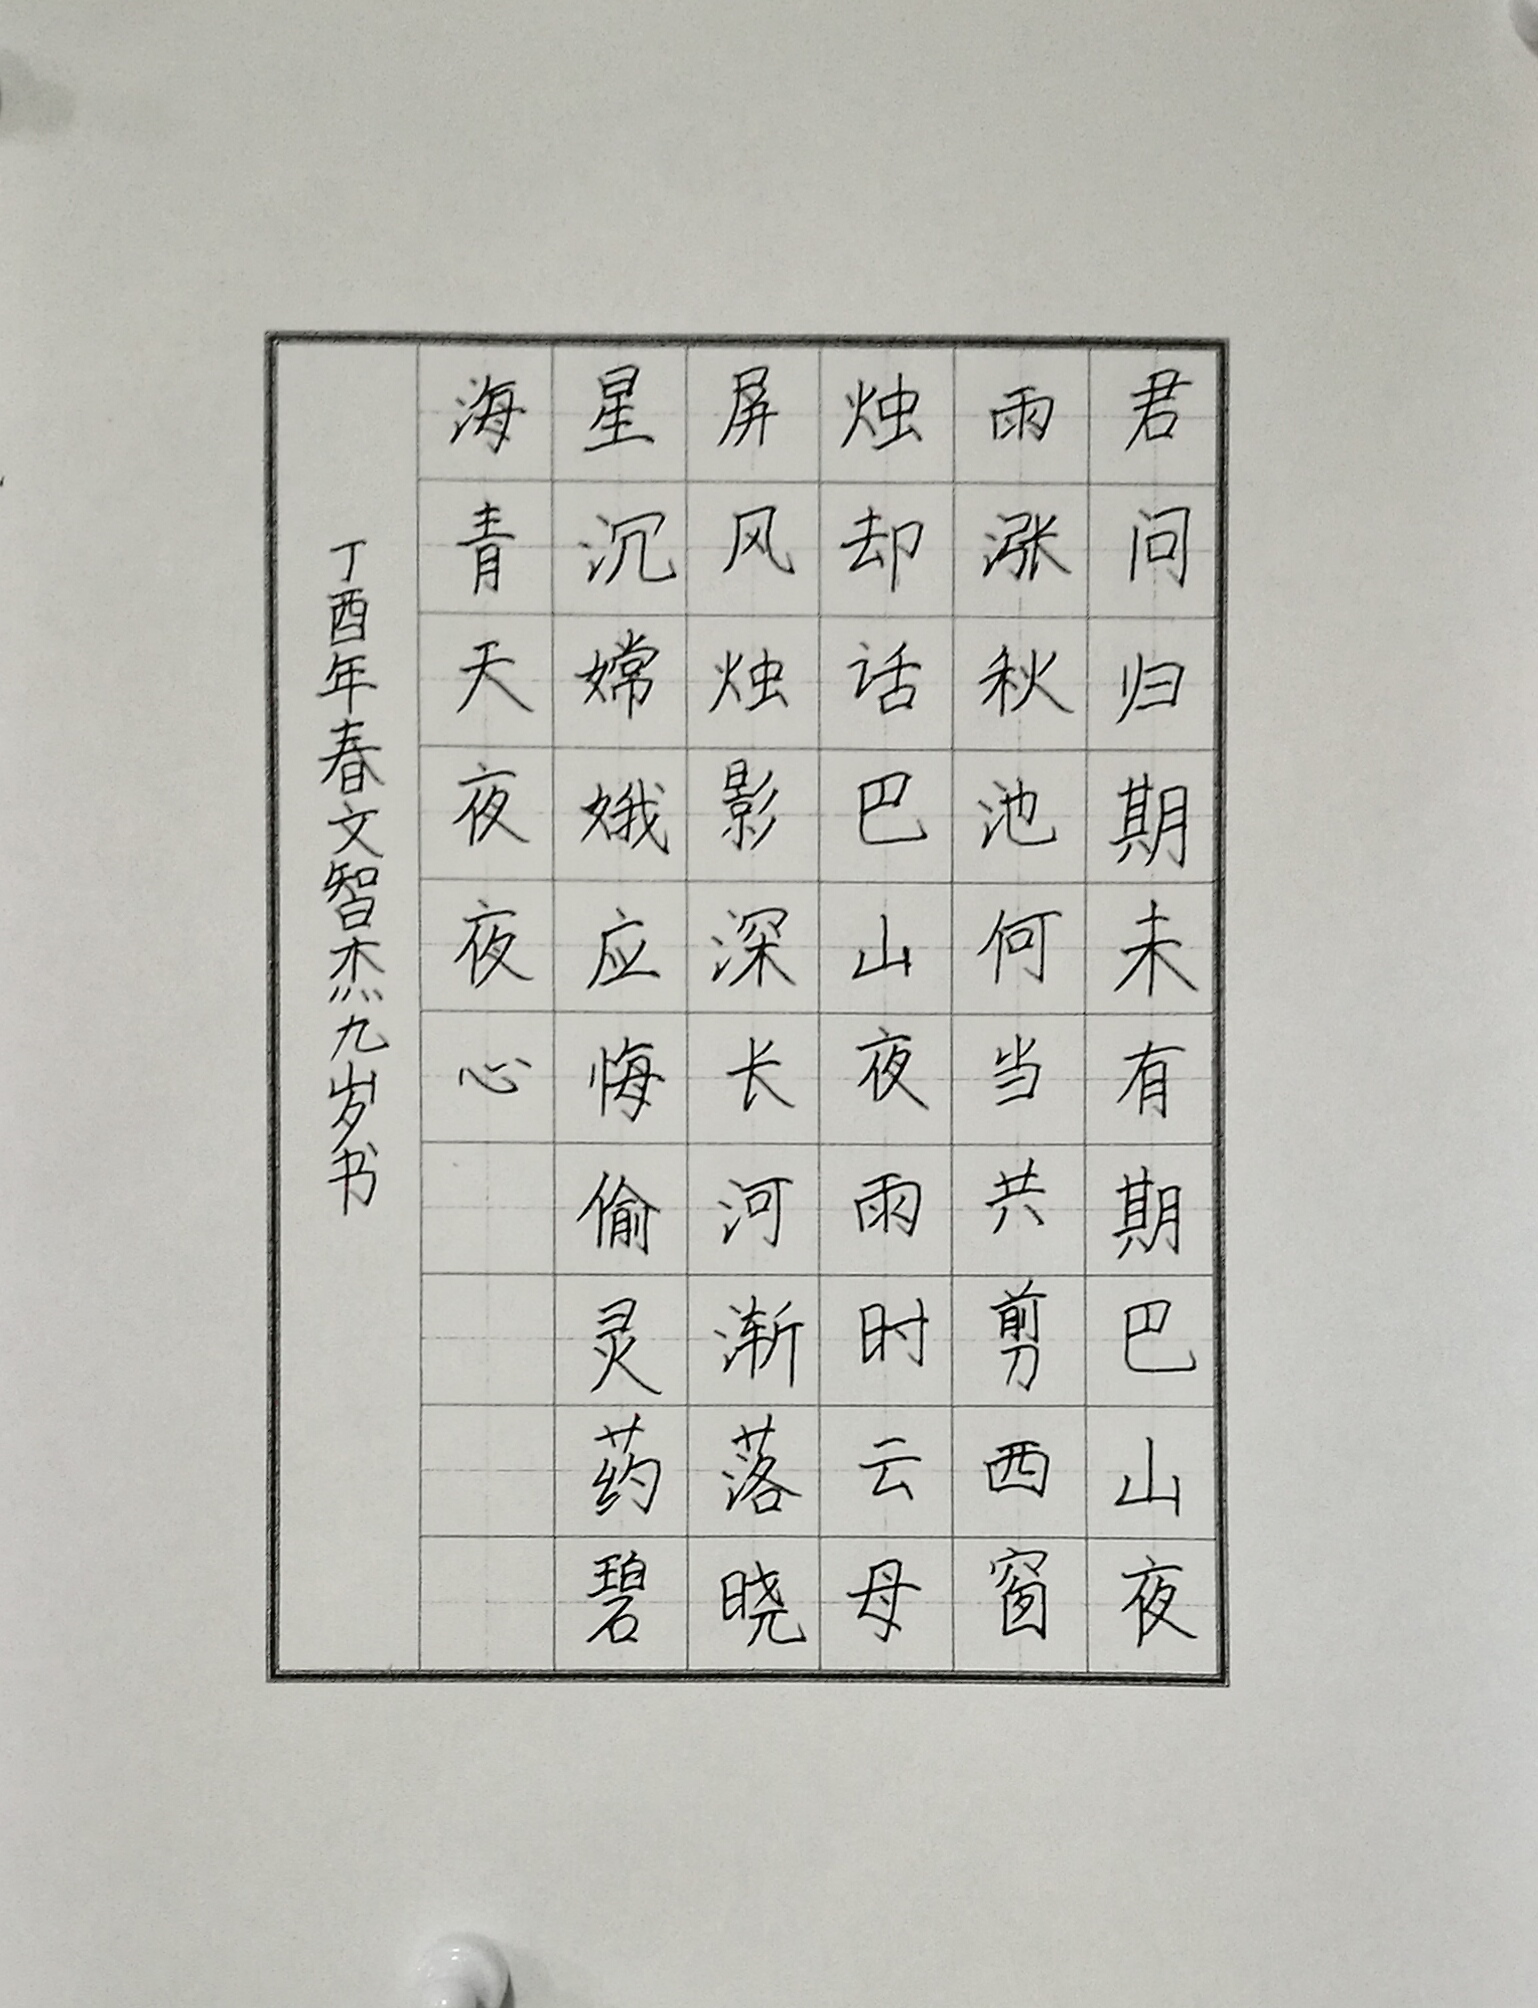 君问归期未有期巴山夜
雨涨秋池何当共剪西窗
烛却话巴山夜雨时云母
屏风烛影深长河渐落晓
星沉嫦娥应悔偷灵药碧
海青天夜夜心
丁酉年春文智杰九岁书